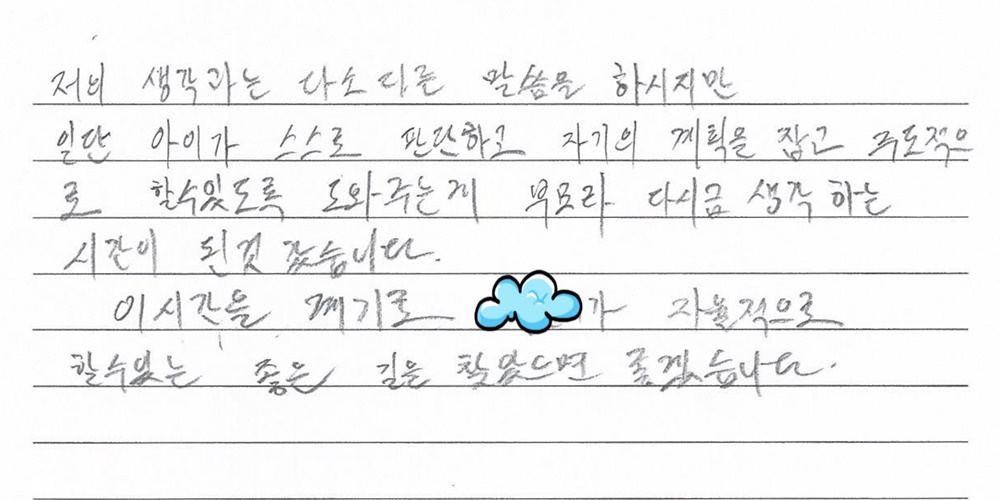 저의 생각과는 다소 다른 말씀을 하시지만
일단 아이가 스스로 판단하고 자기의 계획을 잡고 주도적으
로 할수있도록 도와주는게 부모라 다시금 생각하는
시간이 된것 같습니다.
이시간을 계기로 가 자율적으로
할수있는 좋은 길을 찾았으면 좋겠습니다.